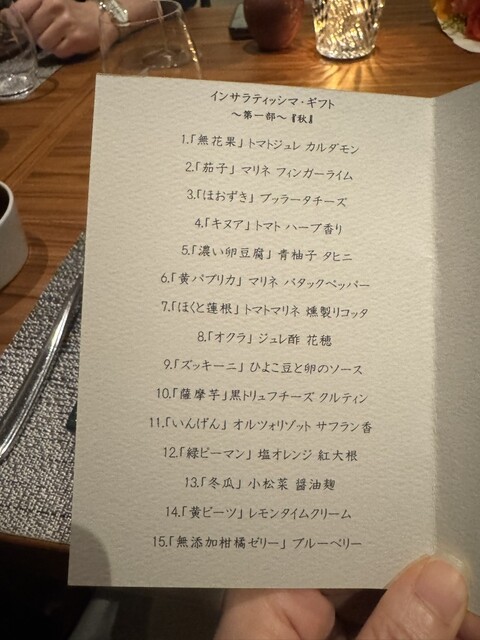 インサラティッシマ・ギフト
～第一部～『秋』
1.「無花果」トマトジュレ カルダモン
2.「茄子」マリネ フィンガーライム
3.「ほおずき」ブッラータチーズ
4.「キヌア」トマト ハーブ香り
5.「濃い卵豆腐」青柚子 タヒニ
6.「黄パプリカ」マリネ バタックペッパー
7.「ほくと蓮根」トマトマリネ 燻製リコッタ
8.「オクラ」ジュレ酢 花穂
9.「ズッキーニ」ひよこ豆と卵のソース
10.「薩摩芋」黒トリュフチーズ クルティン
11.「いんげん」オルツォリゾット サフラン香
12.「緑ピーマン」塩オレンジ 紅大根
13.「冬瓜」小松菜 醤油麹
14.「黄ビーツ」レモンタイムクリーム
15.「無添加柑橘ゼリー」ブルーベリー